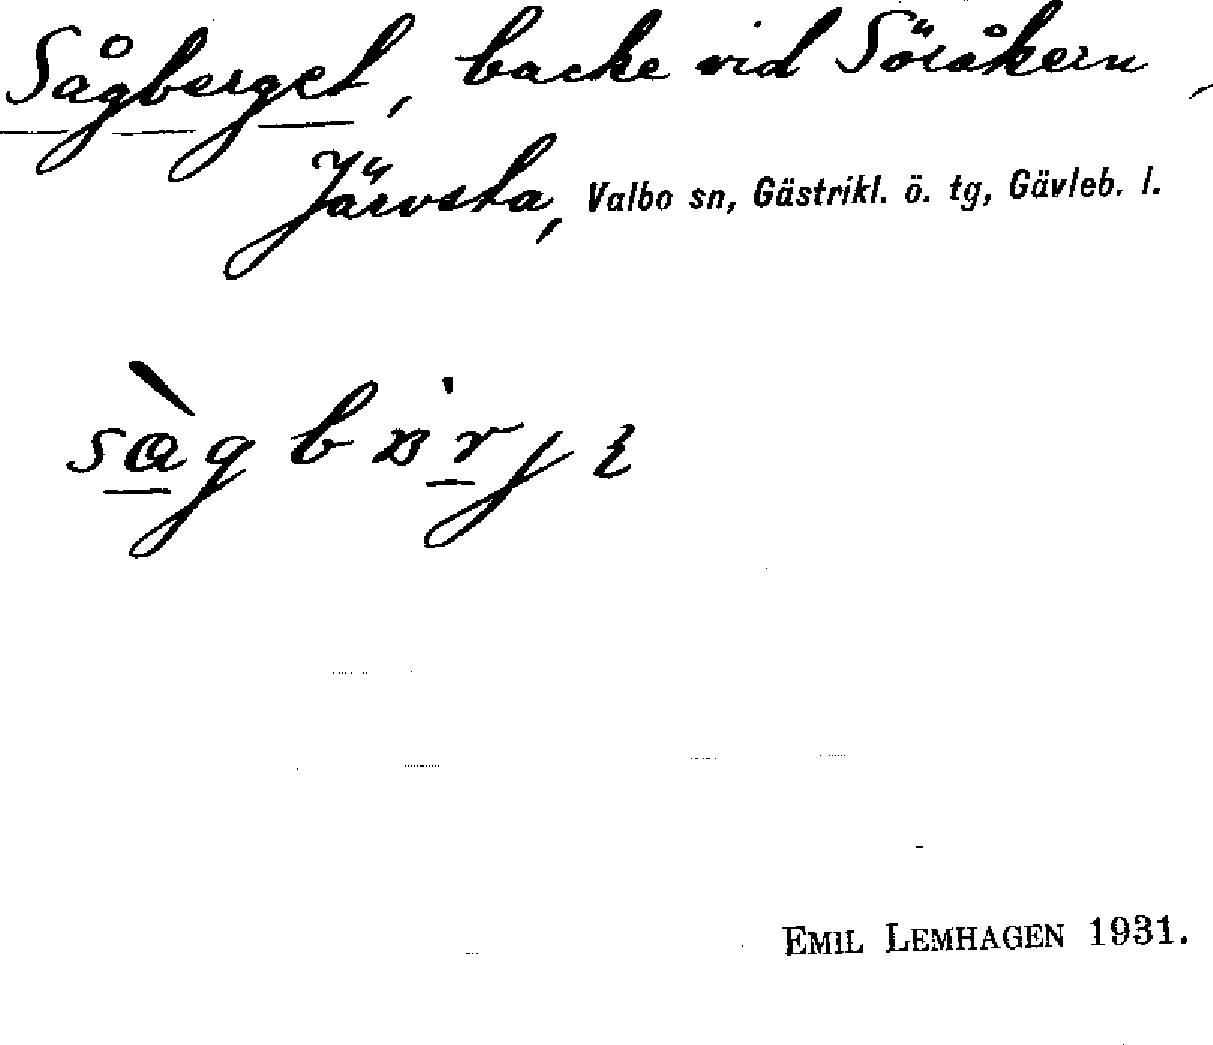 Sågberget, backe vid Söråkern,
Järvsta, Valbo sn, Gästrikl. ö. tg, Gävleb. l.
EMIL LEMHAGEN 1931.